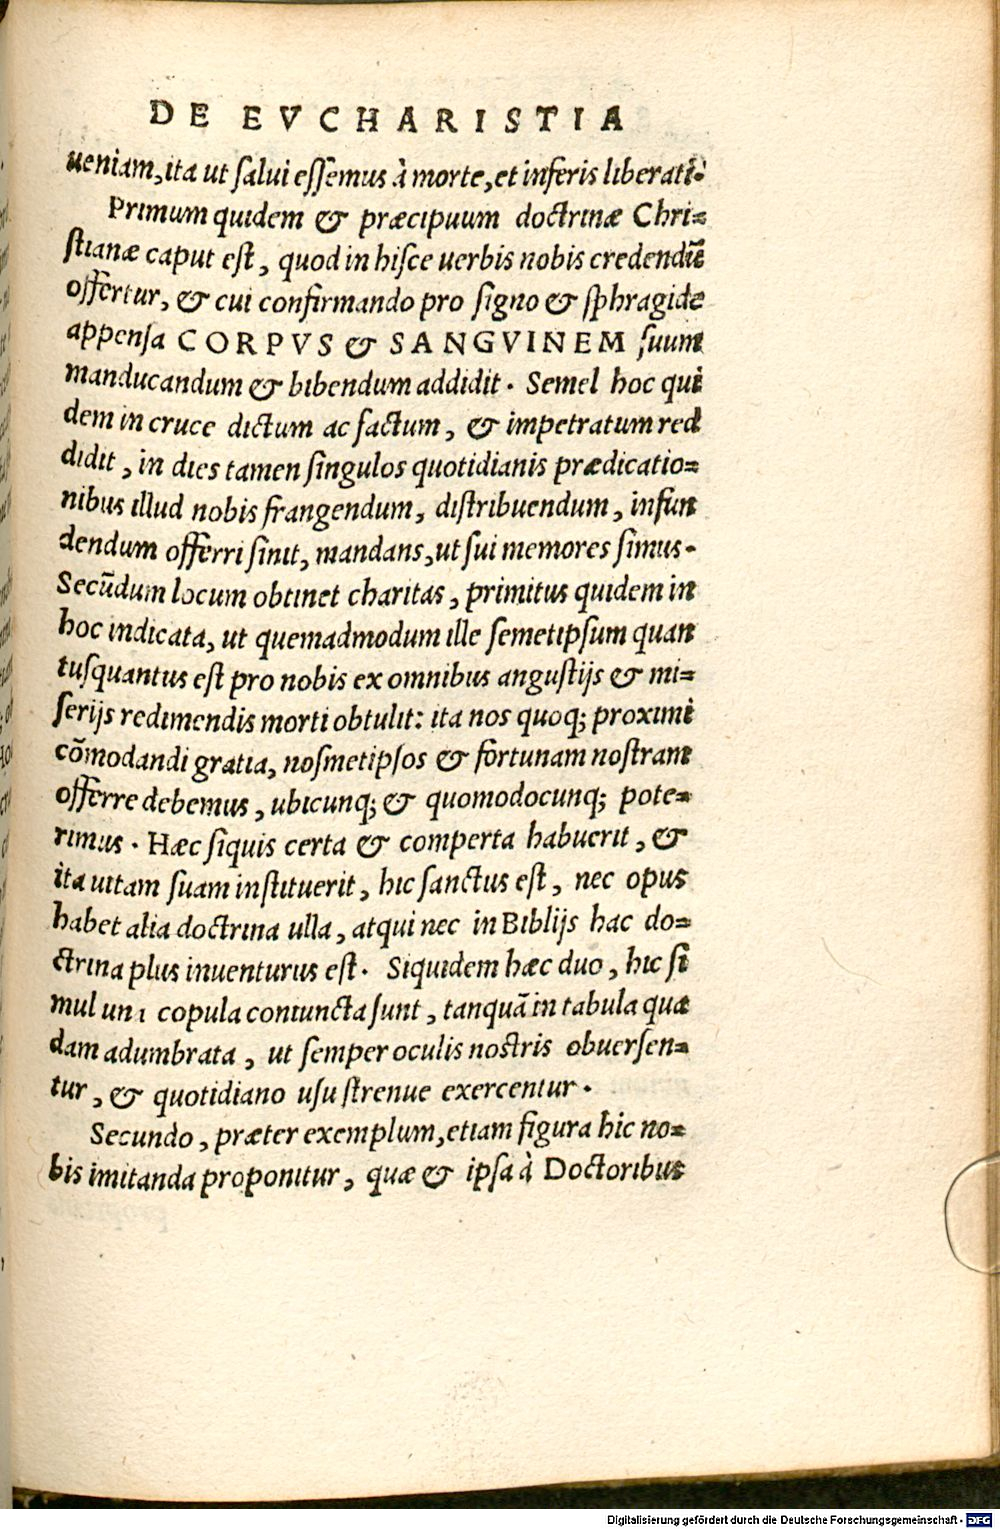 DE EVCHARISTIA
ueniam, ita ut ſalui eſſemus à morte, et inferis liberati.
Primum quidem & præcipuum doctrinæ Chri⸗
ſtianæ caput eſt, quod in hiſce uerbis nobis credendũ
offertur, & cui confirmando pro ſigno & ſphragide
appenſa CORPVS & SANGVINEM ſuum
manducandum & bibendum addidit. Semel hoc qui
dem in cruce dictum ac factum, & impetratum red
didit, in dies tamen ſingulos quotidianis prædicatio⸗
nibus illud nobis frangendum, diſtribuendum, infun
dendum offerri ſinit, mandans, ut ſui memores ſimus.
Secũdum locum obtinet charitas, primitus quidem in
hoc indicata, ut quemadmodum ille ſemetipſum quan
tuſquantus eſt pro nobis ex omnibus anguſtijs & mi⸗
ſerijs redimendis morti obtulit: ita nos quoq; proximi
cõmodandi gratia, noſmetipſos & fortunam noſtram
offerre debemus, ubicunq; & quomodocunq; pote⸗
rimus. Hæc ſiquis certa & comperta habuerit, &
ita uitam ſuam inſtituerit, hic ſanctus eſt, nec opus
habet alia doctrina ulla, atqui nec in Biblijs hac do⸗
ctrina plus inuenturus eſt. Siquidem hæc duo, hic ſi
mul una copula coniuncta ſunt, tanquã in tabula quæ
dam adumbrata, ut ſemper oculis noſtris obuerſen⸗
tur, & quotidiano uſu ſtrenue exercentur.
Secundo, præter exemplum, etiam figura hic no⸗
bis imitanda proponitur, quæ & ipſa à Doctoribus
Digitalisierung gefördert durch die Deutsche Forschungsgemeinschaft - DFG